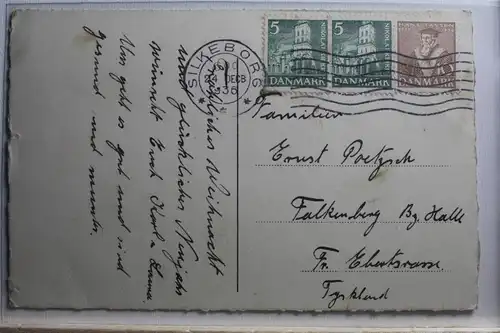 Fröhliches Weihnacht
und glückliches Neujahr
wünscht Euch Karl u. Emma
Uns geht es gut und sind
gesund und munter.
SILKEBORG
DECB
36
5
5
DANMARK
DANMARK
DANMARK
Familien
Ernst Poetzsch
Falkenberg Bz. Halle
Fr. Ebertstrasse
Tyskland